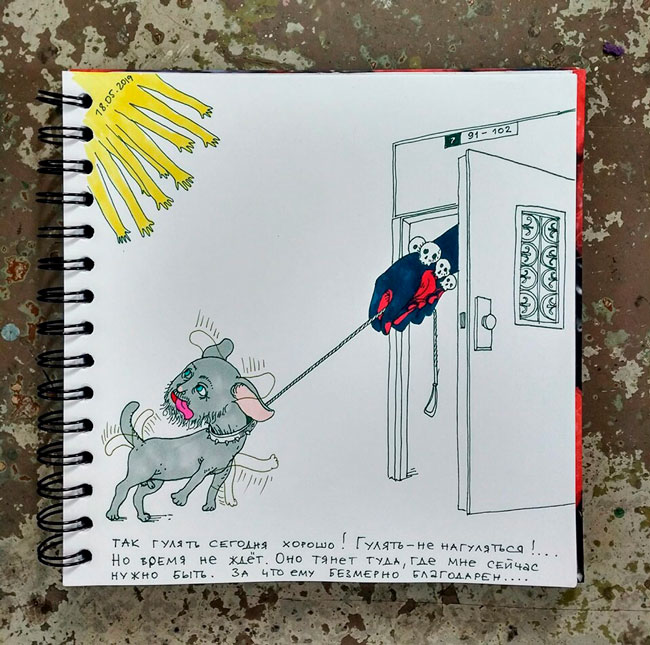 18.05.2019
7 91-102
ТАК ГУЛЯТЬ СЕГОДНЯ ХОРОШО! ГУЛЯТЬ-НЕ НАГУЛЯТЬСЯ!....
НО ВРЕМЯ НЕ ЖДЁТ. ОНО ТЯНЕТ ТУДА, ГДЕ МНЕ СЕЙЧАС
НУЖНО БЫТЬ. ЗА ЧТО ЕМУ БЕЗМЕРНО БЛАГОДАРЕН....